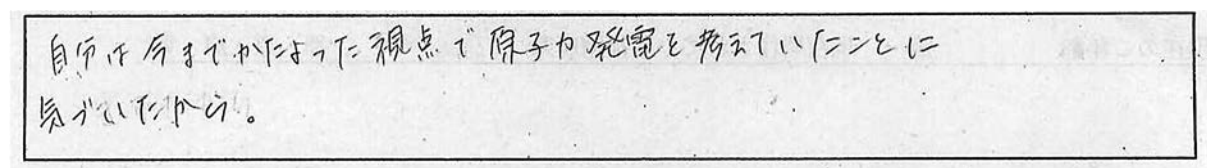 自分は今までかたよった視点で原子力発電を考えていたことに
気づいたから。